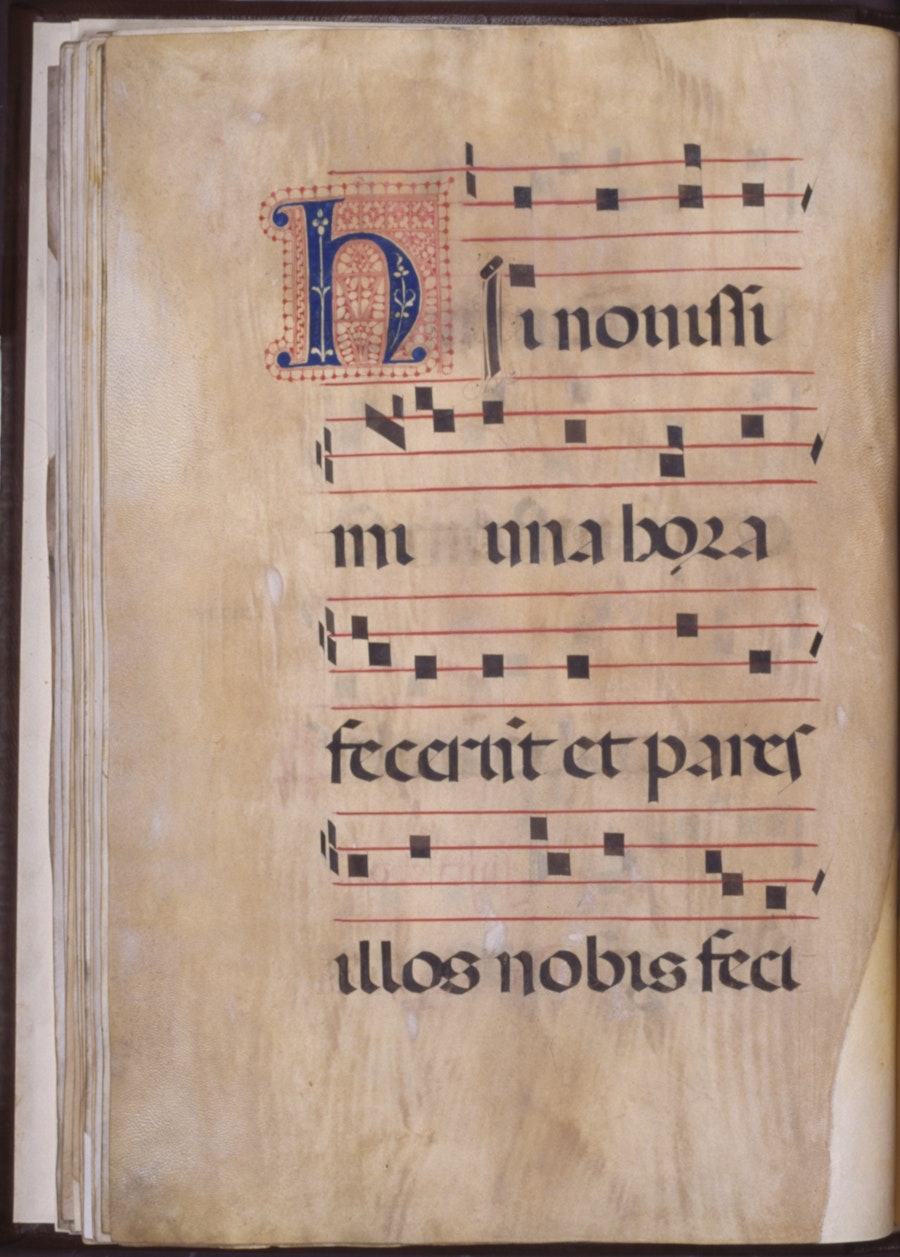 hi nouissi
mi una hora
fecerūt et pares
illos nobis feci